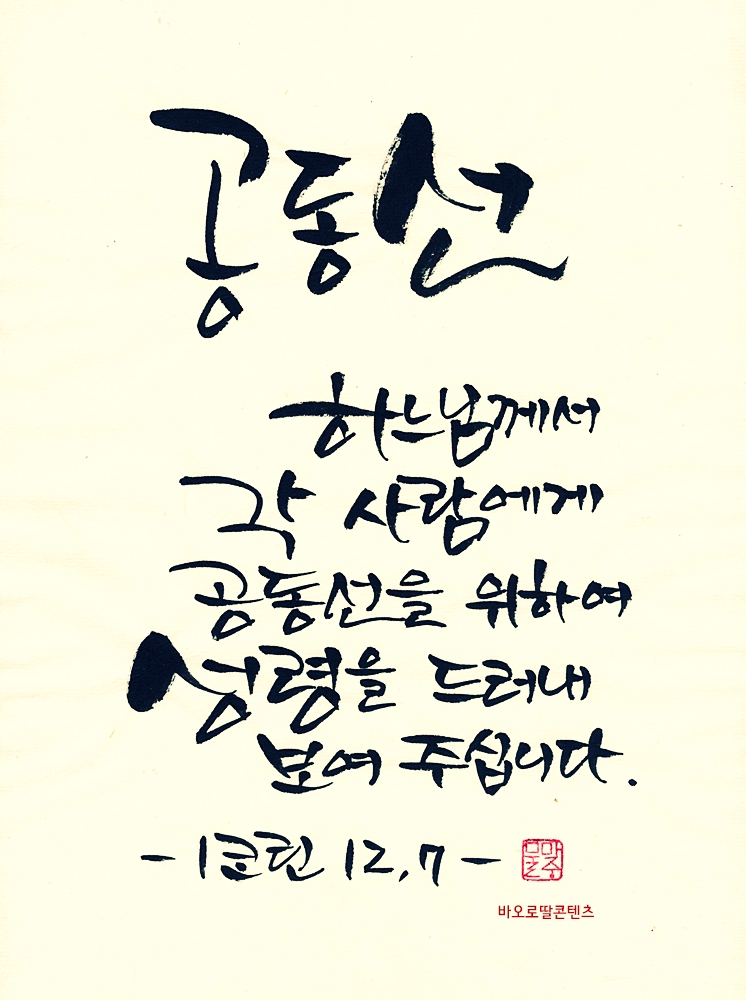 공동선
하느님께서
각 사람에게
공동선을 위하여
성령을 드러내
보여 주십니다.
-1코린 12,7-
바오로딸콘텐츠